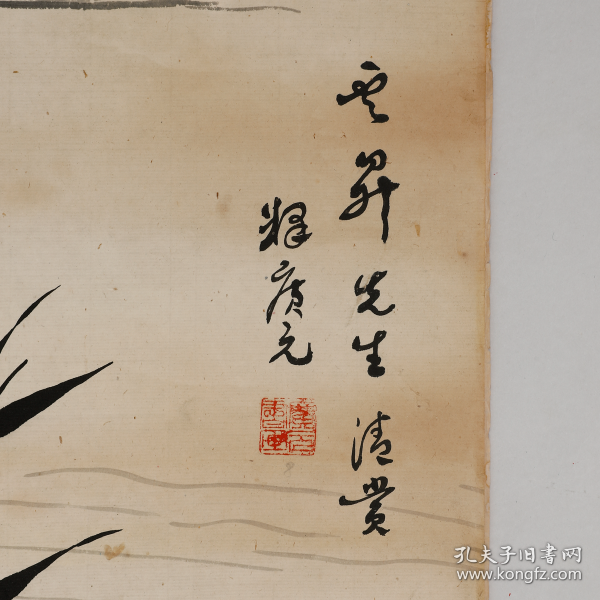 云昇先生清赏
释广元
孔夫子旧书网
www.kongfz.com